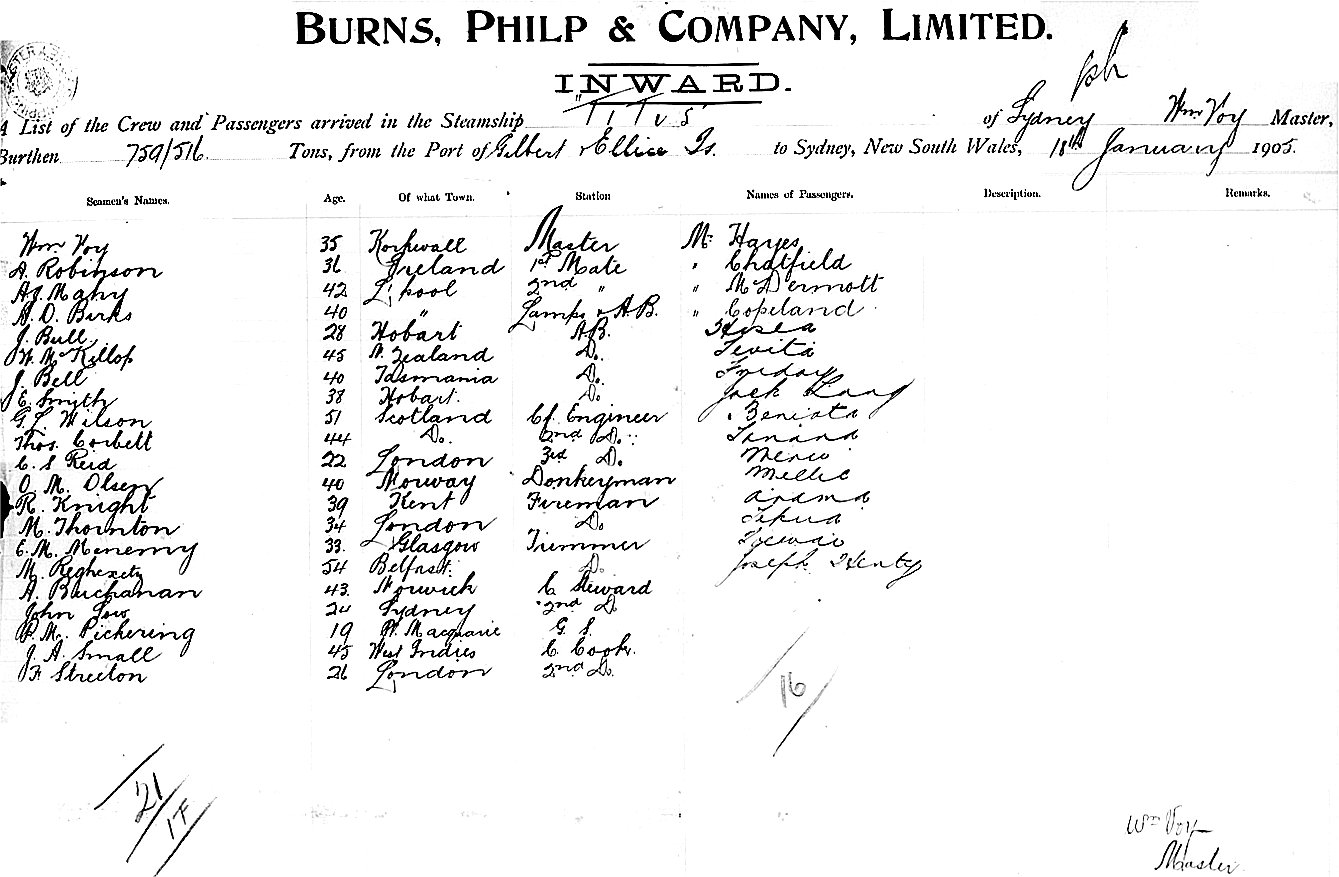 BURNS, PHILP & COMPANY, LIMITED.
INWARD.
A List of the Crew and Passengers arrived in the Steamship "Titus" of Sydney Wm Voy Master,
Burthen 759/516 Tons, from the Port of Gilbert & Ellice Is. to Sydney, New South Wales, 18th January 1905.
Seamen's Names. Age. Of what Town. Station Names of Passengers. Description. Remarks.
Wm Voy 35 Korkwall Master Mr Hayes
A. Robinson 36 Ireland 1st Mate " Chatfield
A.J. Mahy 42 L'pool 2nd " " McDermott
A. D. Birks 40 " Lamps & A.B. " Copeland
J. Bull 28 Hobart A.B.
W. McKillop 45 N. Zealand Do. Tevita
J. Bell 40 Tasmania Do. Friday
J. E. Smyth 38 Hobart. Do. Jack Lang
G. L. Wilson 51 Scotland Cf. Engineer Beniata
Thos. Corbett 44 Do. 2nd Do. Tanana
C. S Reid 22 London 3rd Do.
O. M. Olsen 40 Norway Donkeyman Mellie
R. Knight 39 Kent Fireman Arama
M. Thornton 34 London Do. Tikua
E. M. Menemy 33. Glasgow Trimmer
M. 54 Belfast. Do. Joseph Henty
A. Buchanan 43. Norwich C. Steward
John Low 24 Sydney 2nd Do
P. M. Pickering 19 Pt. Macquarie G. S.
J. A. Small 45 West Indies C. Cook.
F. Streeton 26 London 2nd Do.
16
21
17
Wm Voy
Master